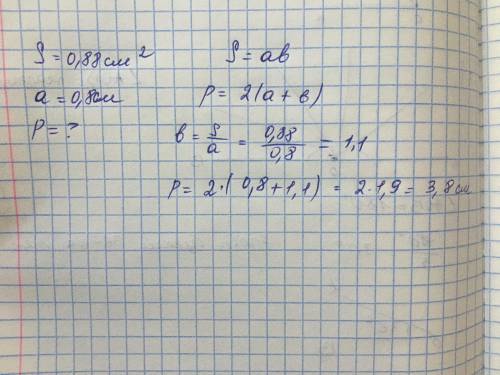 S = 0,88 см²
a = 0,8 см
P = ?
S = ab
P = 2(a + в)
в = S/a = 0,88/0,8 = 1,1
P = 2·(0,8 + 1,1) = 2·1,9 = 3,8 см